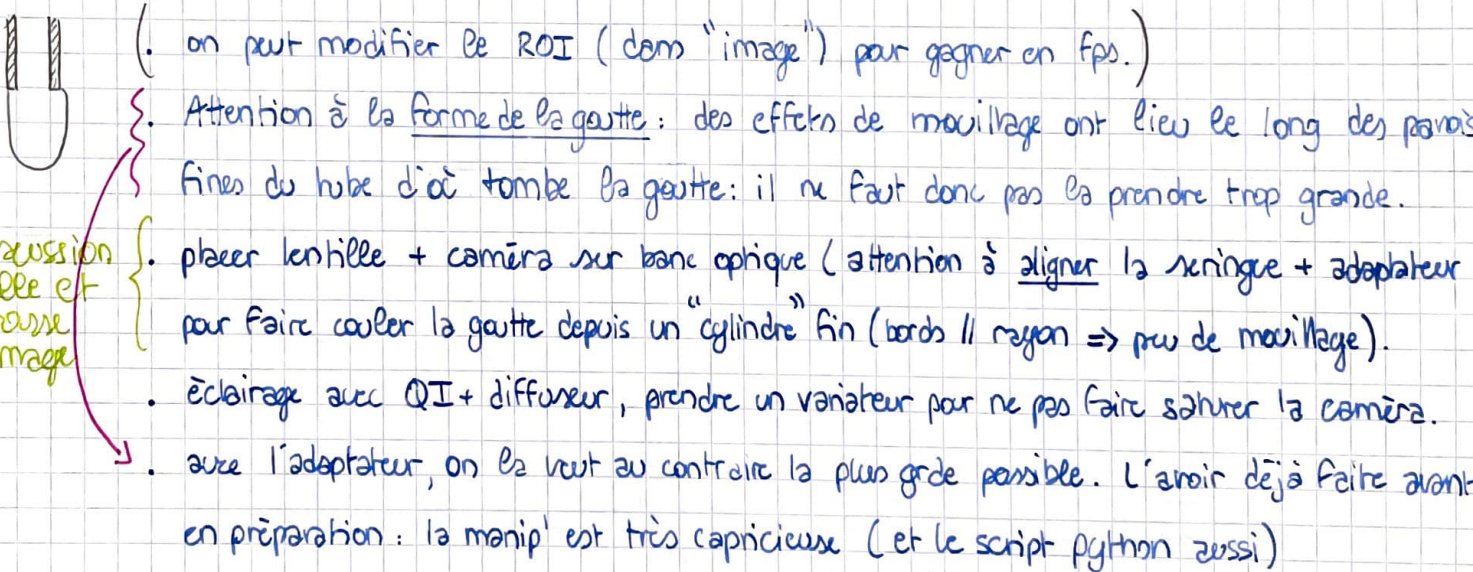 (. on peut modifier le ROI (dans "image") pour gagner en fps.)
. Attention à la forme de la goutte : des effets de mouillage ont lieu le long des parois
fines du tube d'où tombe la goutte : il ne faut donc pas la prendre trop grande.
. placer lentille + caméra sur banc optique (attention à aligner la seringue + adaptateur
pour faire couler la goutte depuis un "cylindre" fin (bords // rayon => peu de mouillage).
. éclairage avec QI + diffuseur, prendre un variateur pour ne pas faire saturer la caméra.
. avec l'adaptateur, on la veut au contraire la plus grde possible. L'avoir déjà faite avant
en préparation : la manip' est très capricieuse (et le script python aussi)
cussion
et
mage